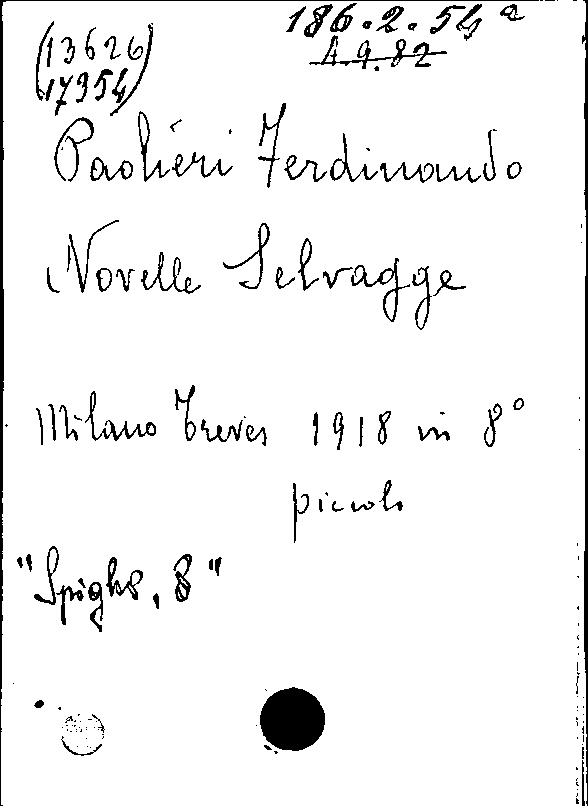 (13626
17354)
186.2.54 a
A.9.82
Paolieri Ferdinando
Novelle Selvagge
Milano Treves 1918 in 8°
piccolo
"Spighe, 8"